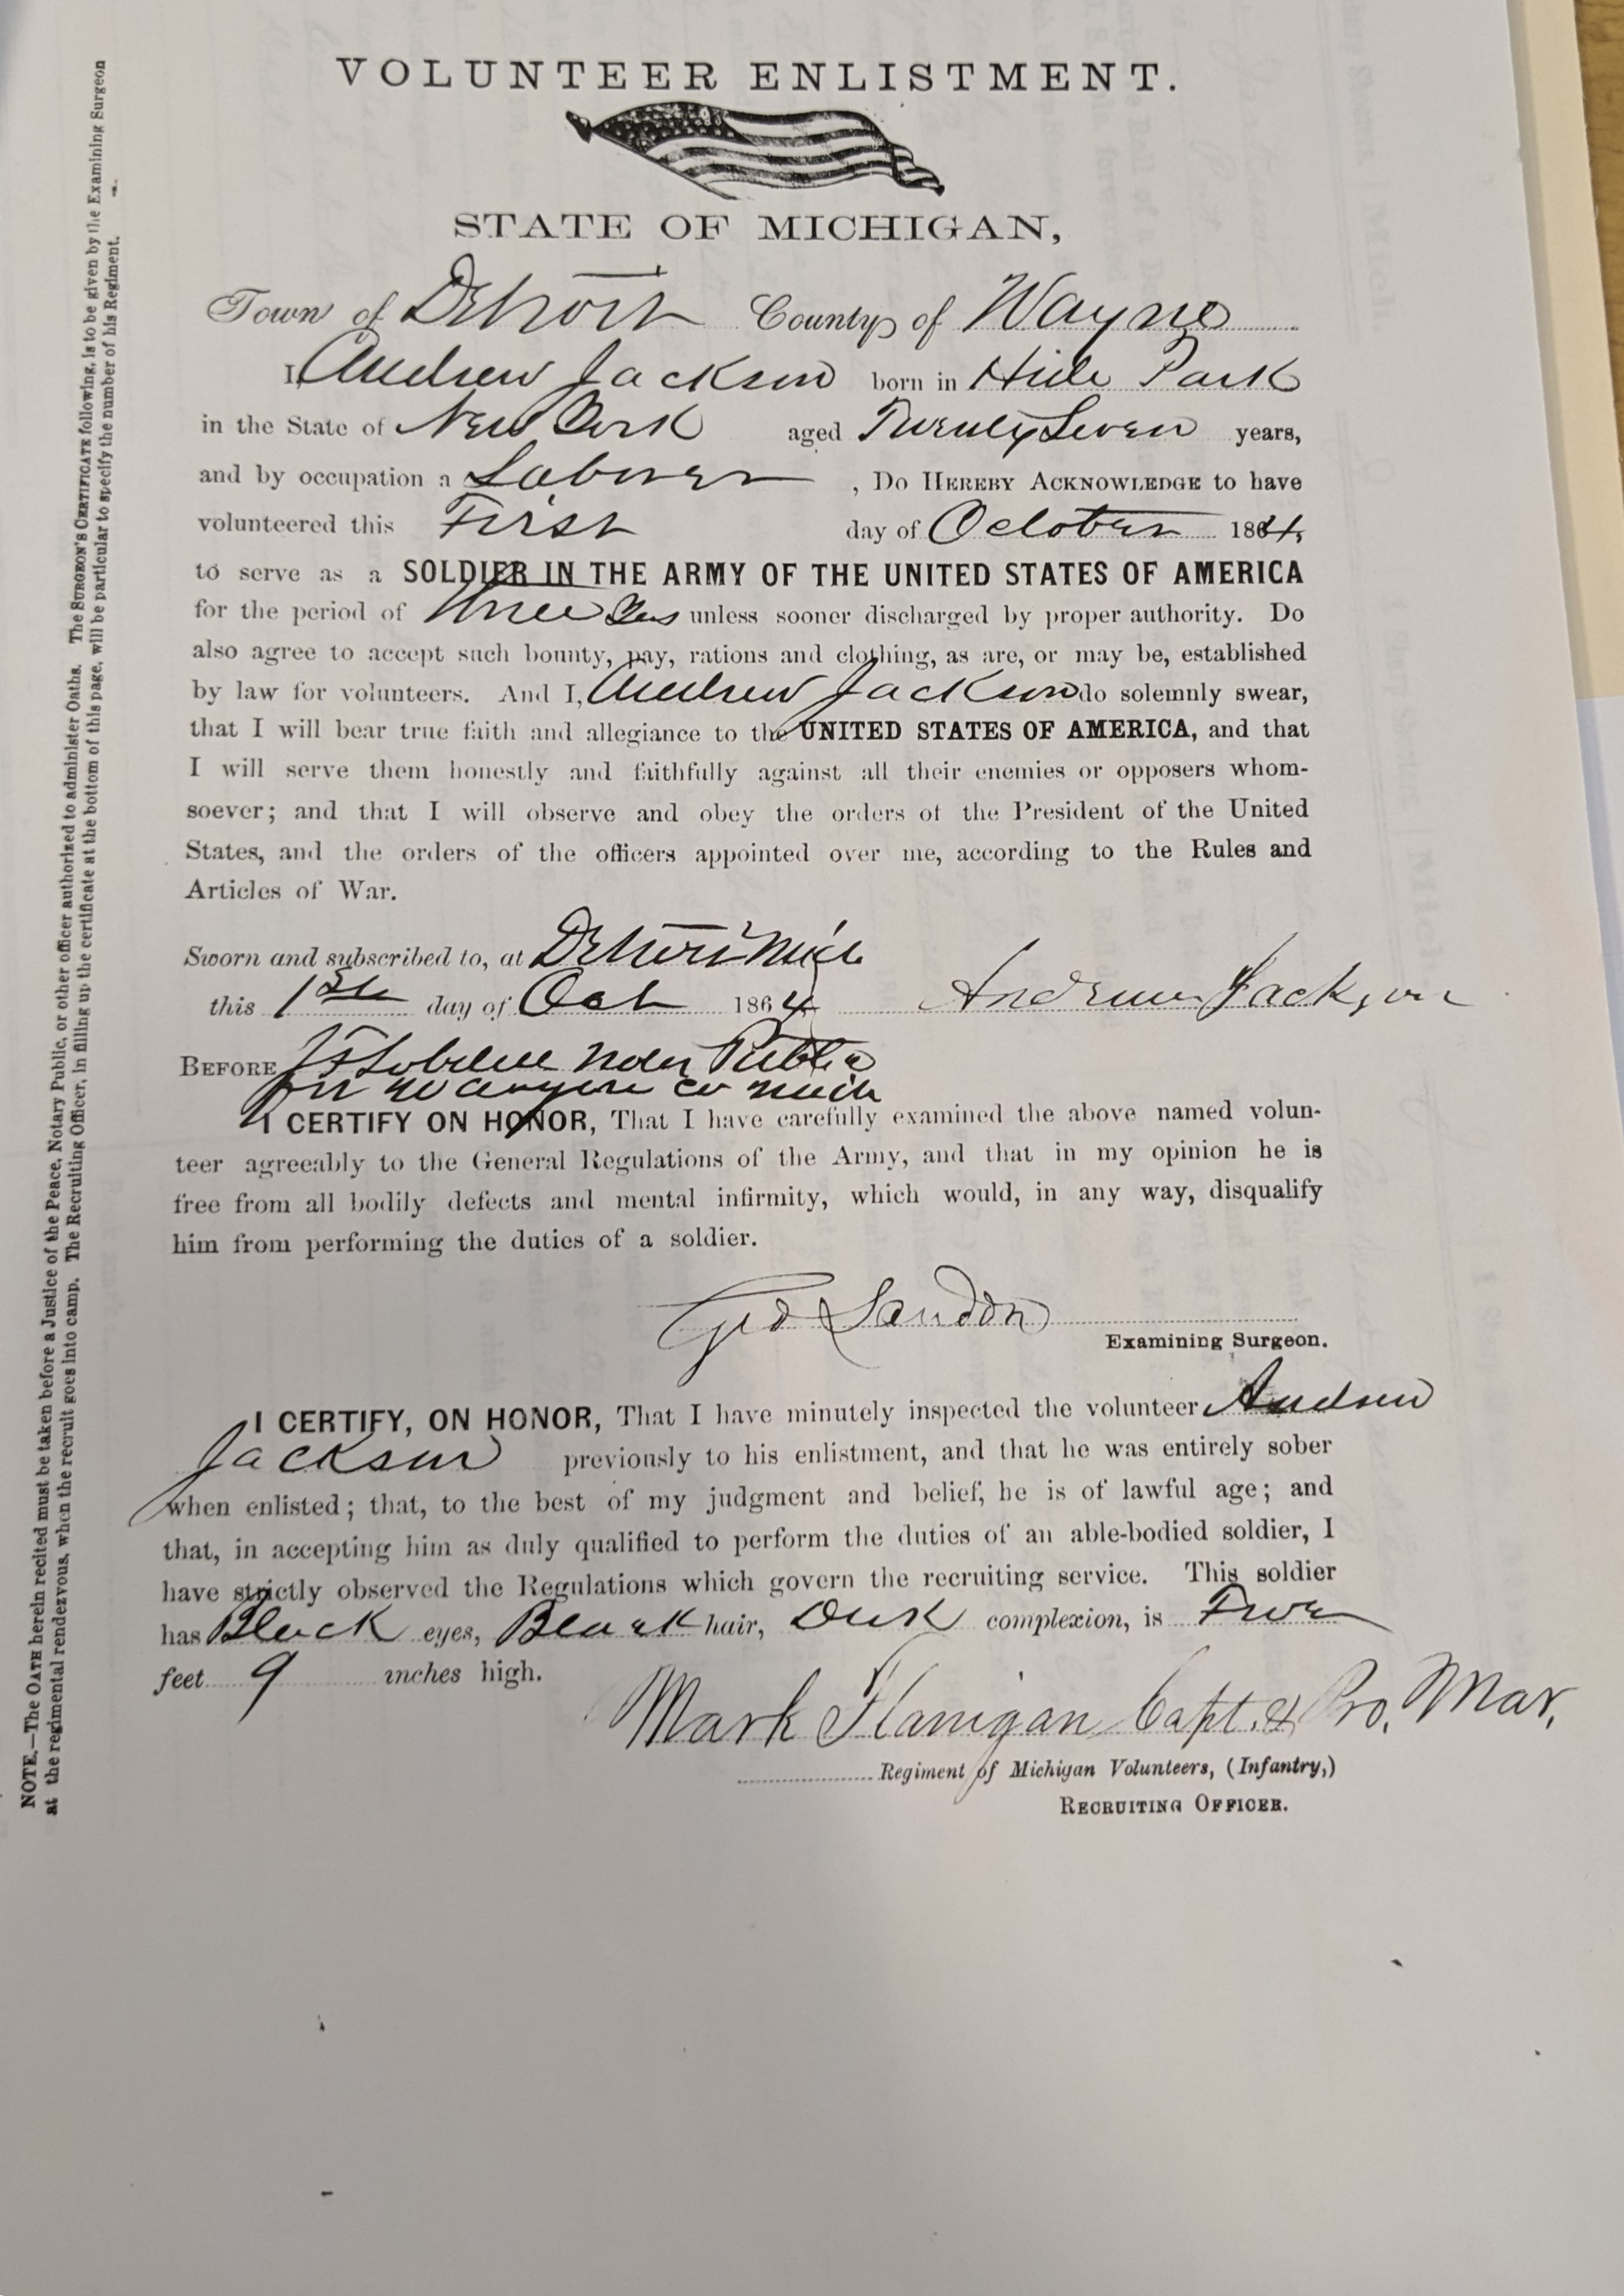 VOLUNTEER ENLISTMENT.
STATE OF MICHIGAN,
Town of Detroit County of Wayne
I, Andrew Jackson born in Hide Park
in the State of New York aged Twenty Seven years,
and by occupation a Laborer , Do HEREBY ACKNOWLEDGE to have
volunteered this First day of October 1864,
to serve as a SOLDIER IN THE ARMY OF THE UNITED STATES OF AMERICA
for the period of Three Yrs unless sooner discharged by proper authority. Do
also agree to accept such bounty, pay, rations and clothing, as are, or may be, established
by law for volunteers. And I, Andrew Jackson do solemnly swear,
that I will bear true faith and allegiance to the UNITED STATES OF AMERICA, and that
I will serve them honestly and faithfully against all their enemies or opposers whom-
soever; and that I will observe and obey the orders of the President of the United
States, and the orders of the officers appointed over me, according to the Rules and
Articles of War.
Sworn and subscribed to, at Detroit Mich
this 1st day of Oct 1864 Andrew Jackson
BEFORE Public
Wayne Co Mich
I CERTIFY ON HONOR, That I have carefully examined the above named volun-
teer agreeably to the General Regulations of the Army, and that in my opinion he is
free from all bodily defects and mental infirmity, which would, in any way, disqualify
him from performing the duties of a soldier.
Geo Landon
Examining Surgeon.
I CERTIFY, ON HONOR, That I have minutely inspected the volunteer Andrew
Jackson previously to his enlistment, and that he was entirely sober
when enlisted; that, to the best of my judgment and belief, he is of lawful age; and
that, in accepting him as duly qualified to perform the duties of an able-bodied soldier, I
have strictly observed the Regulations which govern the recruiting service. This soldier
has Black eyes, Black hair, Dark complexion, is Five
feet 9 inches high.
Mark Flanigan Capt. & Pro. Mar.
Regiment of Michigan Volunteers, (Infantry,)
RECRUITING OFFICER.
NOTE.—The OATH herein recited must be taken before a Justice of the Peace, Notary Public, or other officer authorized to administer Oaths. The SURGEON'S CERTIFICATE following, is to be given by the Examining Surgeon
at the regimental rendezvous, when the recruit goes into camp. The Recruiting Officer, in filling up the certificate at the bottom of this page, will be particular to specify the number of his Regiment.